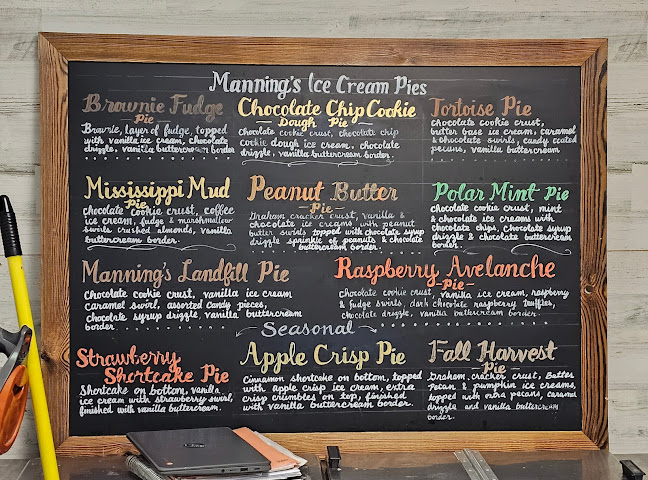 Manning's Ice Cream Pies
Brownie Fudge
Pie
Brownie, layer of fudge, topped
with vanilla ice cream, chocolate
drizzle, vanilla buttercream border.
Chocolate Chip Cookie
Dough Pie
chocolate cookie crust, chocolate chip
cookie dough ice cream, chocolate
drizzle, vanilla buttercream border.
Tortoise Pie
chocolate cookie crust,
butter base ice cream, caramel
& chocolate swirls, candy coated
pecans, vanilla buttercream
Mississippi Mud
Pie
chocolate cookie crust, coffee
ice cream, fudge & marshmallow
swirls crushed almonds, vanilla
buttercream border.
Peanut Butter
- Pie -
Graham cracker crust, vanilla &
chocolate ice creams with peanut
butter swirls topped with chocolate syrup
drizzle sprinkle of peanuts & chocolate
buttercream border.
Polar Mint Pie
chocolate cookie crust, mint
& chocolate ice creams with
chocolate chips, chocolate syrup
drizzle & chocolate buttercream
border.
Manning's Landfill Pie
Chocolate cookie crust, vanilla ice cream
caramel swirl, assorted candy pieces,
chocolate syrup drizzle, vanilla buttercream
border
Raspberry Avalanche
- Pie -
Chocolate cookie crust, vanilla ice cream, raspberry
& fudge swirls, dark chocolate raspberry truffles,
chocolate drizzle, vanilla buttercream border.
Seasonal
Strawberry
Shortcake Pie
Shortcake on bottom, vanilla
ice cream with strawberry swirl,
finished with vanilla buttercream.
Apple Crisp Pie
Cinnamon shortcake on bottom, topped
with apple crisp ice cream, extra
crisp crumbles on top, finished
with vanilla buttercream border.
Fall Harvest
Pie
Graham cracker crust, Butter
Pecan & pumpkin ice creams,
topped with extra pecans, caramel
drizzle and vanilla buttercream
border.